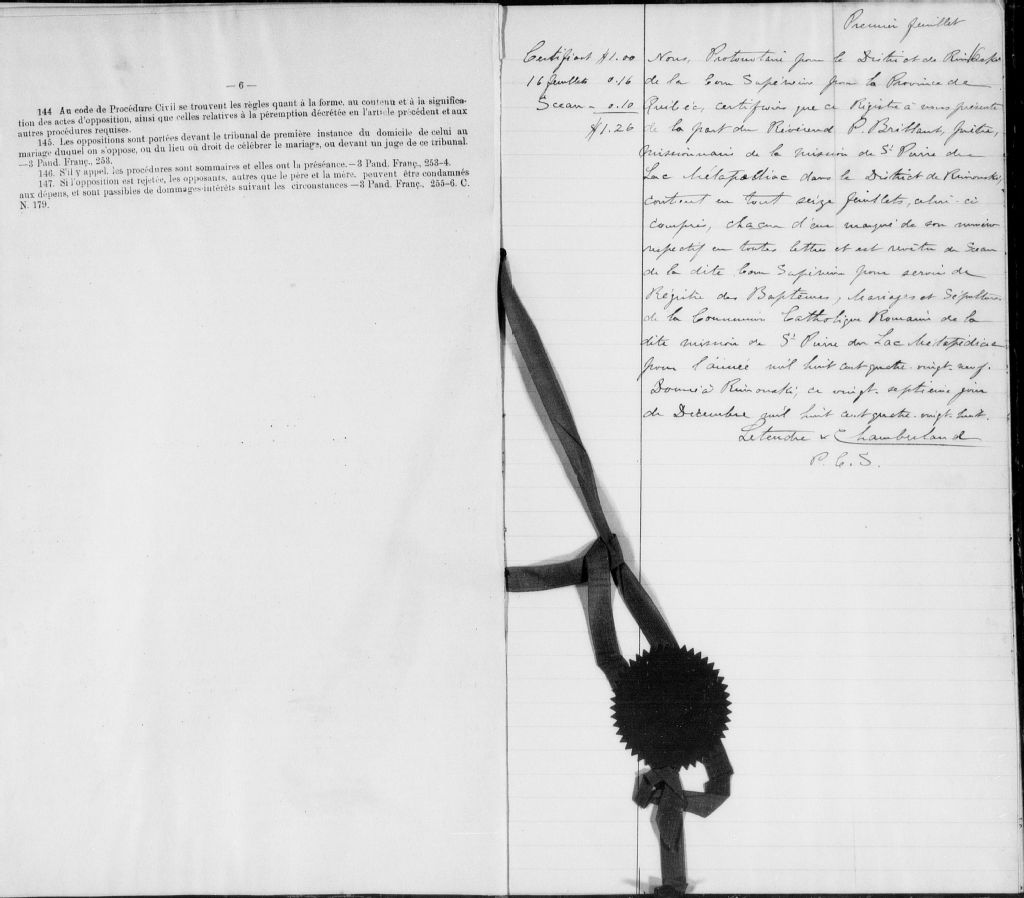 — 6 —
144 Au code de Procédure Civil se trouvent les règles quant à la forme, au contenu et à la significa-
tion des actes d'opposition, ainsi que celles relatives à la péremption décrétée en l'article précédent et aux
autres procédures requises.
145. Les oppositions sont portées devant le tribunal de première instance du domicile de celui au
mariage duquel on s'oppose, ou du lieu où droit de célébrer le mariage, ou devant un juge de ce tribunal.
—3 Pand. Franç., 253.
146. S'il y appel, les procédures sont sommaires et elles ont la préséance.—3 Pand. Franç., 253-4.
147. Si l'opposition est rejetée, les opposants, autres que le père et la mère, peuvent être condamnés
aux dépens, et sont passibles de dommages-intérêts suivant les circonstances —3 Pand. Franç., 255-6. C.
N. 179.
Premier feuillet
Certificat $1.00
16 feuillets 0.16
Sceau - 0.10
$1.26
Nous, Protonotaire pour le District de Rimouski
de la Cour Supérieure pour la Province de
Québec, certifions que ce Régistre à nous présenté
de la part du Révérend P. Brillant, Prêtre,
missionnaire de la mission de St Pierre du
Lac Métapédiac dans le District de Rimouski,
contient en tout seize feuillets, celui-ci
compris, chacun d'eux marqué de son numéro
respectif en toutes lettres et est revêtu du Sceau
de la dite Cour Supérieure pour servir de
Régistre des Baptêmes, Mariages et Sépultures
de la Communion Catholique Romaine de la
dite mission de St Pierre du Lac Métapédiac
pour l'année mil huit cent quatre-vingt-neuf.
Donné à Rimouski, ce vingt-septième jour
de Décembre mil huit cent quatre-vingt-huit.
Letendre & Chamberland
P. C. S.